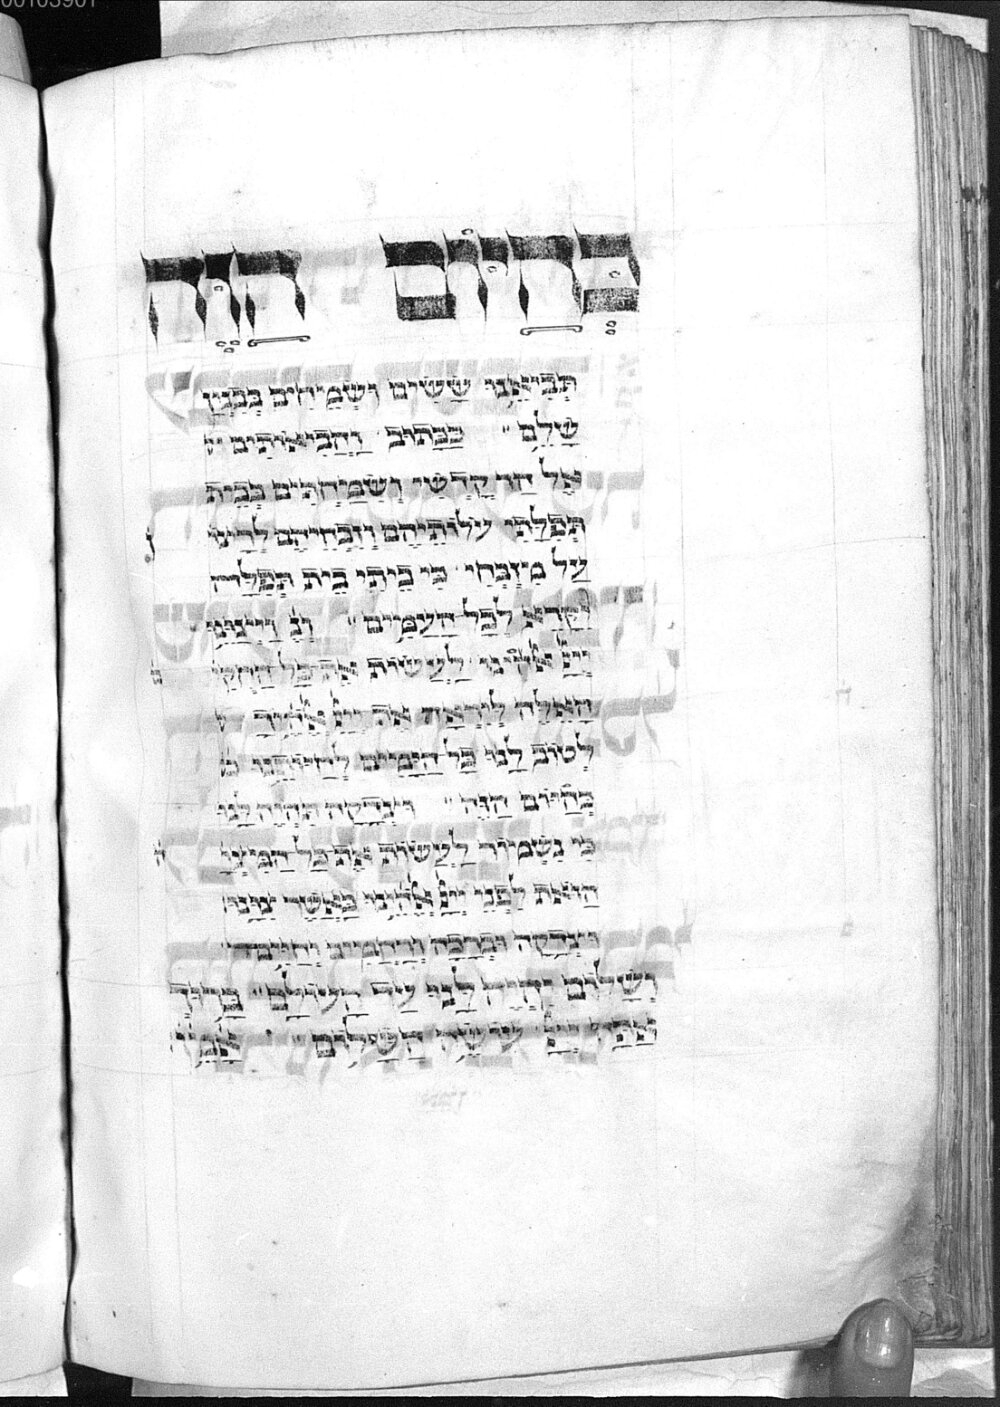 00103901
בַּיּוֹם הַזֶּה
תְּבִיאֵנִי שָׂשִׂים וּשְׂמֵיחִים בְּבִנְיַן
שָׁלֵם׳׳ כַּכָּתוּב וַהֲבִיאוֹתִים
אֶל הַר קָדְשִׁי וְשִׂמַּחְתִּים בְּבֵית
תְּפִלָּתִי עוֹלוֹתֵיהֶם וְזִבְחֵיהֶם לְרָצוֹ
עַל מִזְבְּחִי כִּי בֵיתִי בֵּית תְּפִלָּה
יִקָּרֵא לְכָל הָעַמִּים׳׳ וְנֶ׳ וַיְצַוֵּנוּ
יְיָ אֱלֹהֵינוּ לַעֲשׂוֹת אֶת כָּל הַחֻקִּי
הָאֵלֶּה לְיִרְאָה אֶת יְיָ אֱלֹהֵינוּ
לְטוֹב לָנוּ כָּל הַיָּמִים לְחַיּוֹתֵנוּ
כְּהַיּוֹם הַזֶּה׳׳ וּצְדָקָה תִּהְיֶה לָנוּ
כִּי נִשְׁמוֹר לַעֲשׂוֹת אֶת כָּל הַמִּצְוָ
הַזֹּאת לִפְנֵי יְיָ אֱלֹהֵינוּ כַּאֲשֶׁר צִוָּנוּ
וּצְדָקָה וּבְרָכָה וְרַחֲמִים וְחַיִּים
וְשָׁלוֹם יִהְיֶה לָנוּ עַד הָעוֹלָם׳׳ בָּרוּךְ
אַתָּה יְיָ עוֹשֶׂה הַשָּׁלוֹם׳